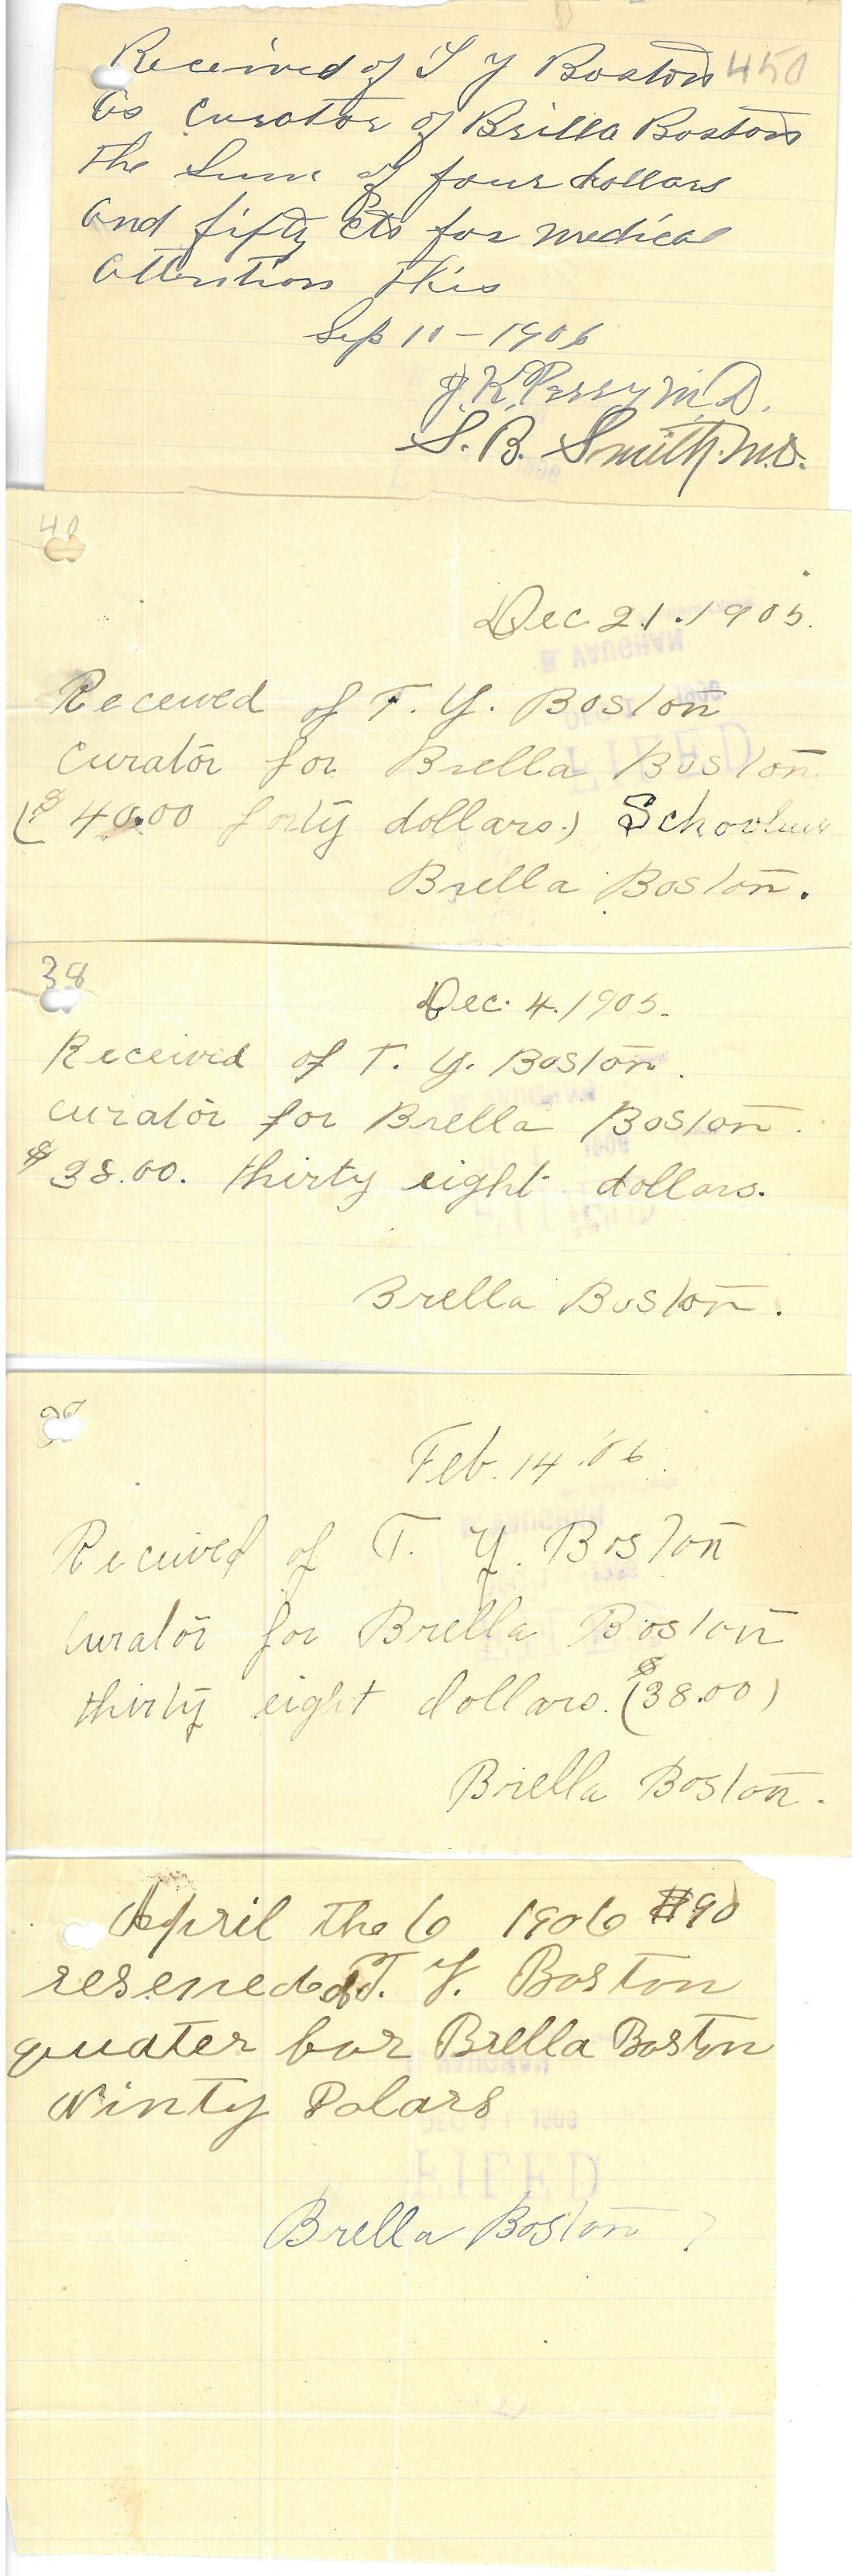 Received of T Y Boston 450
as curator of Brella Boston
the sum of four dollars
and fifty cts for medical
attention this
Sep 10 - 1906
J. K. Perry M.D.
S. B. Smith. M.D.
40
Dec 21. 1905.
Received of T. Y. Boston
curator for Brella Boston
($40.00 forty dollars.)
Brella Boston.
38
Dec. 4. 1905.
Received of T. Y. Boston.
curator for Brella Boston.
$38.00. thirty eight dollars.
Brella Boston.
Feb. 14. '06.
Received of T. Y. Boston
curator for Brella Boston
thirty eight dollars. ($38.00)
Brella Boston.
April the 6 1906 #90
reseved of T. Y. Boston
quater for Brella Boston
Ninty Dolars
Brella Boston